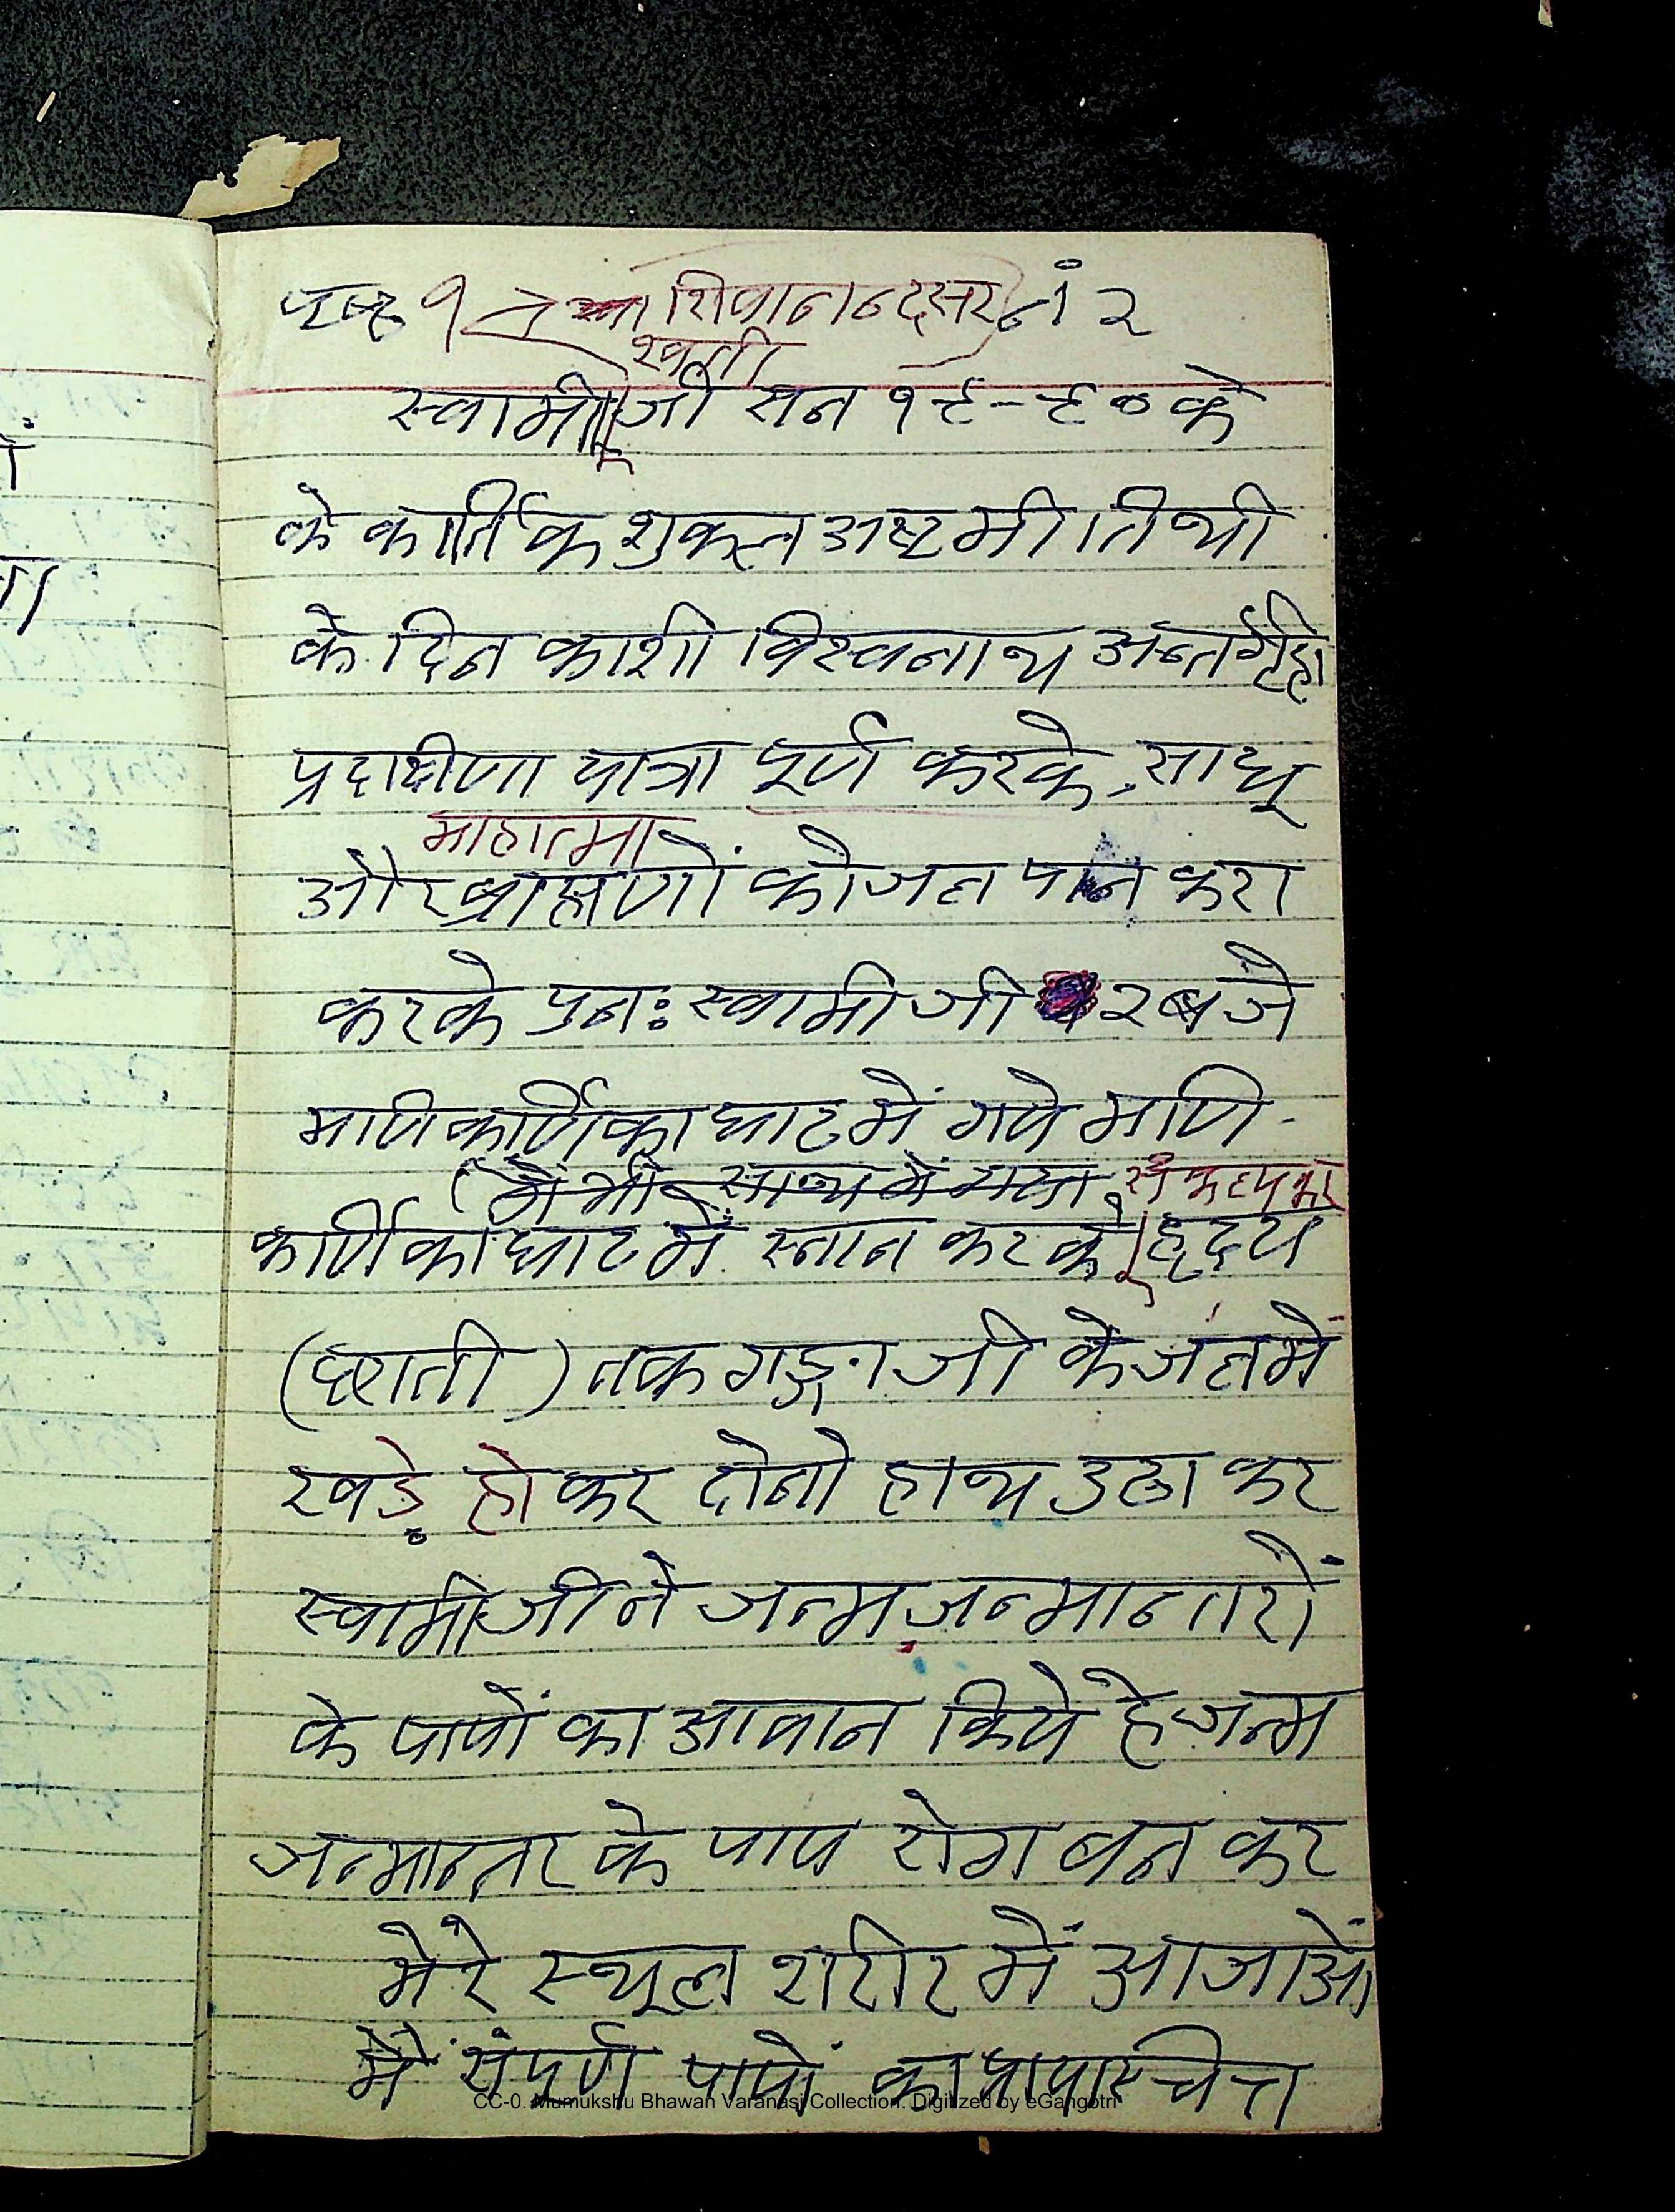 पृष्ठ १ शिवानन्द सर नं २
स्वती
स्वामी जी सन १९-९० के
के कार्तिक शुक्ल अष्टमी तिथी
के दिन काशी विस्वनाथ अन्तर्गृही
प्रदाक्षीणा यात्रा पूर्ण करके, साधू
माहात्मा
और ब्राह्मणों को जल पान करा
करके पुनः स्वामी जी २ बजे
माणिकार्णिका घाट में गये माणि-
(मैं भी साथ में गया संकल्प कर
कार्णिका घाट में स्नान कर के हृदय
(छाती) तक गङ्गा जी के जल में
खड़े होकर दोनो हाथ उठा कर
स्वामी जी ने जन्म जन्मान्तरों
के पापों का आवान किये है जन्म
जन्मान्तर के पाप रोग बन कर
मेरे स्थूल शरीर में आ जाओं
मैं संपूर्ण पापों का प्रायस्चित्त
CC-0. Mumukshu Bhawan Varanasi Collection. Digitized by eGangotri